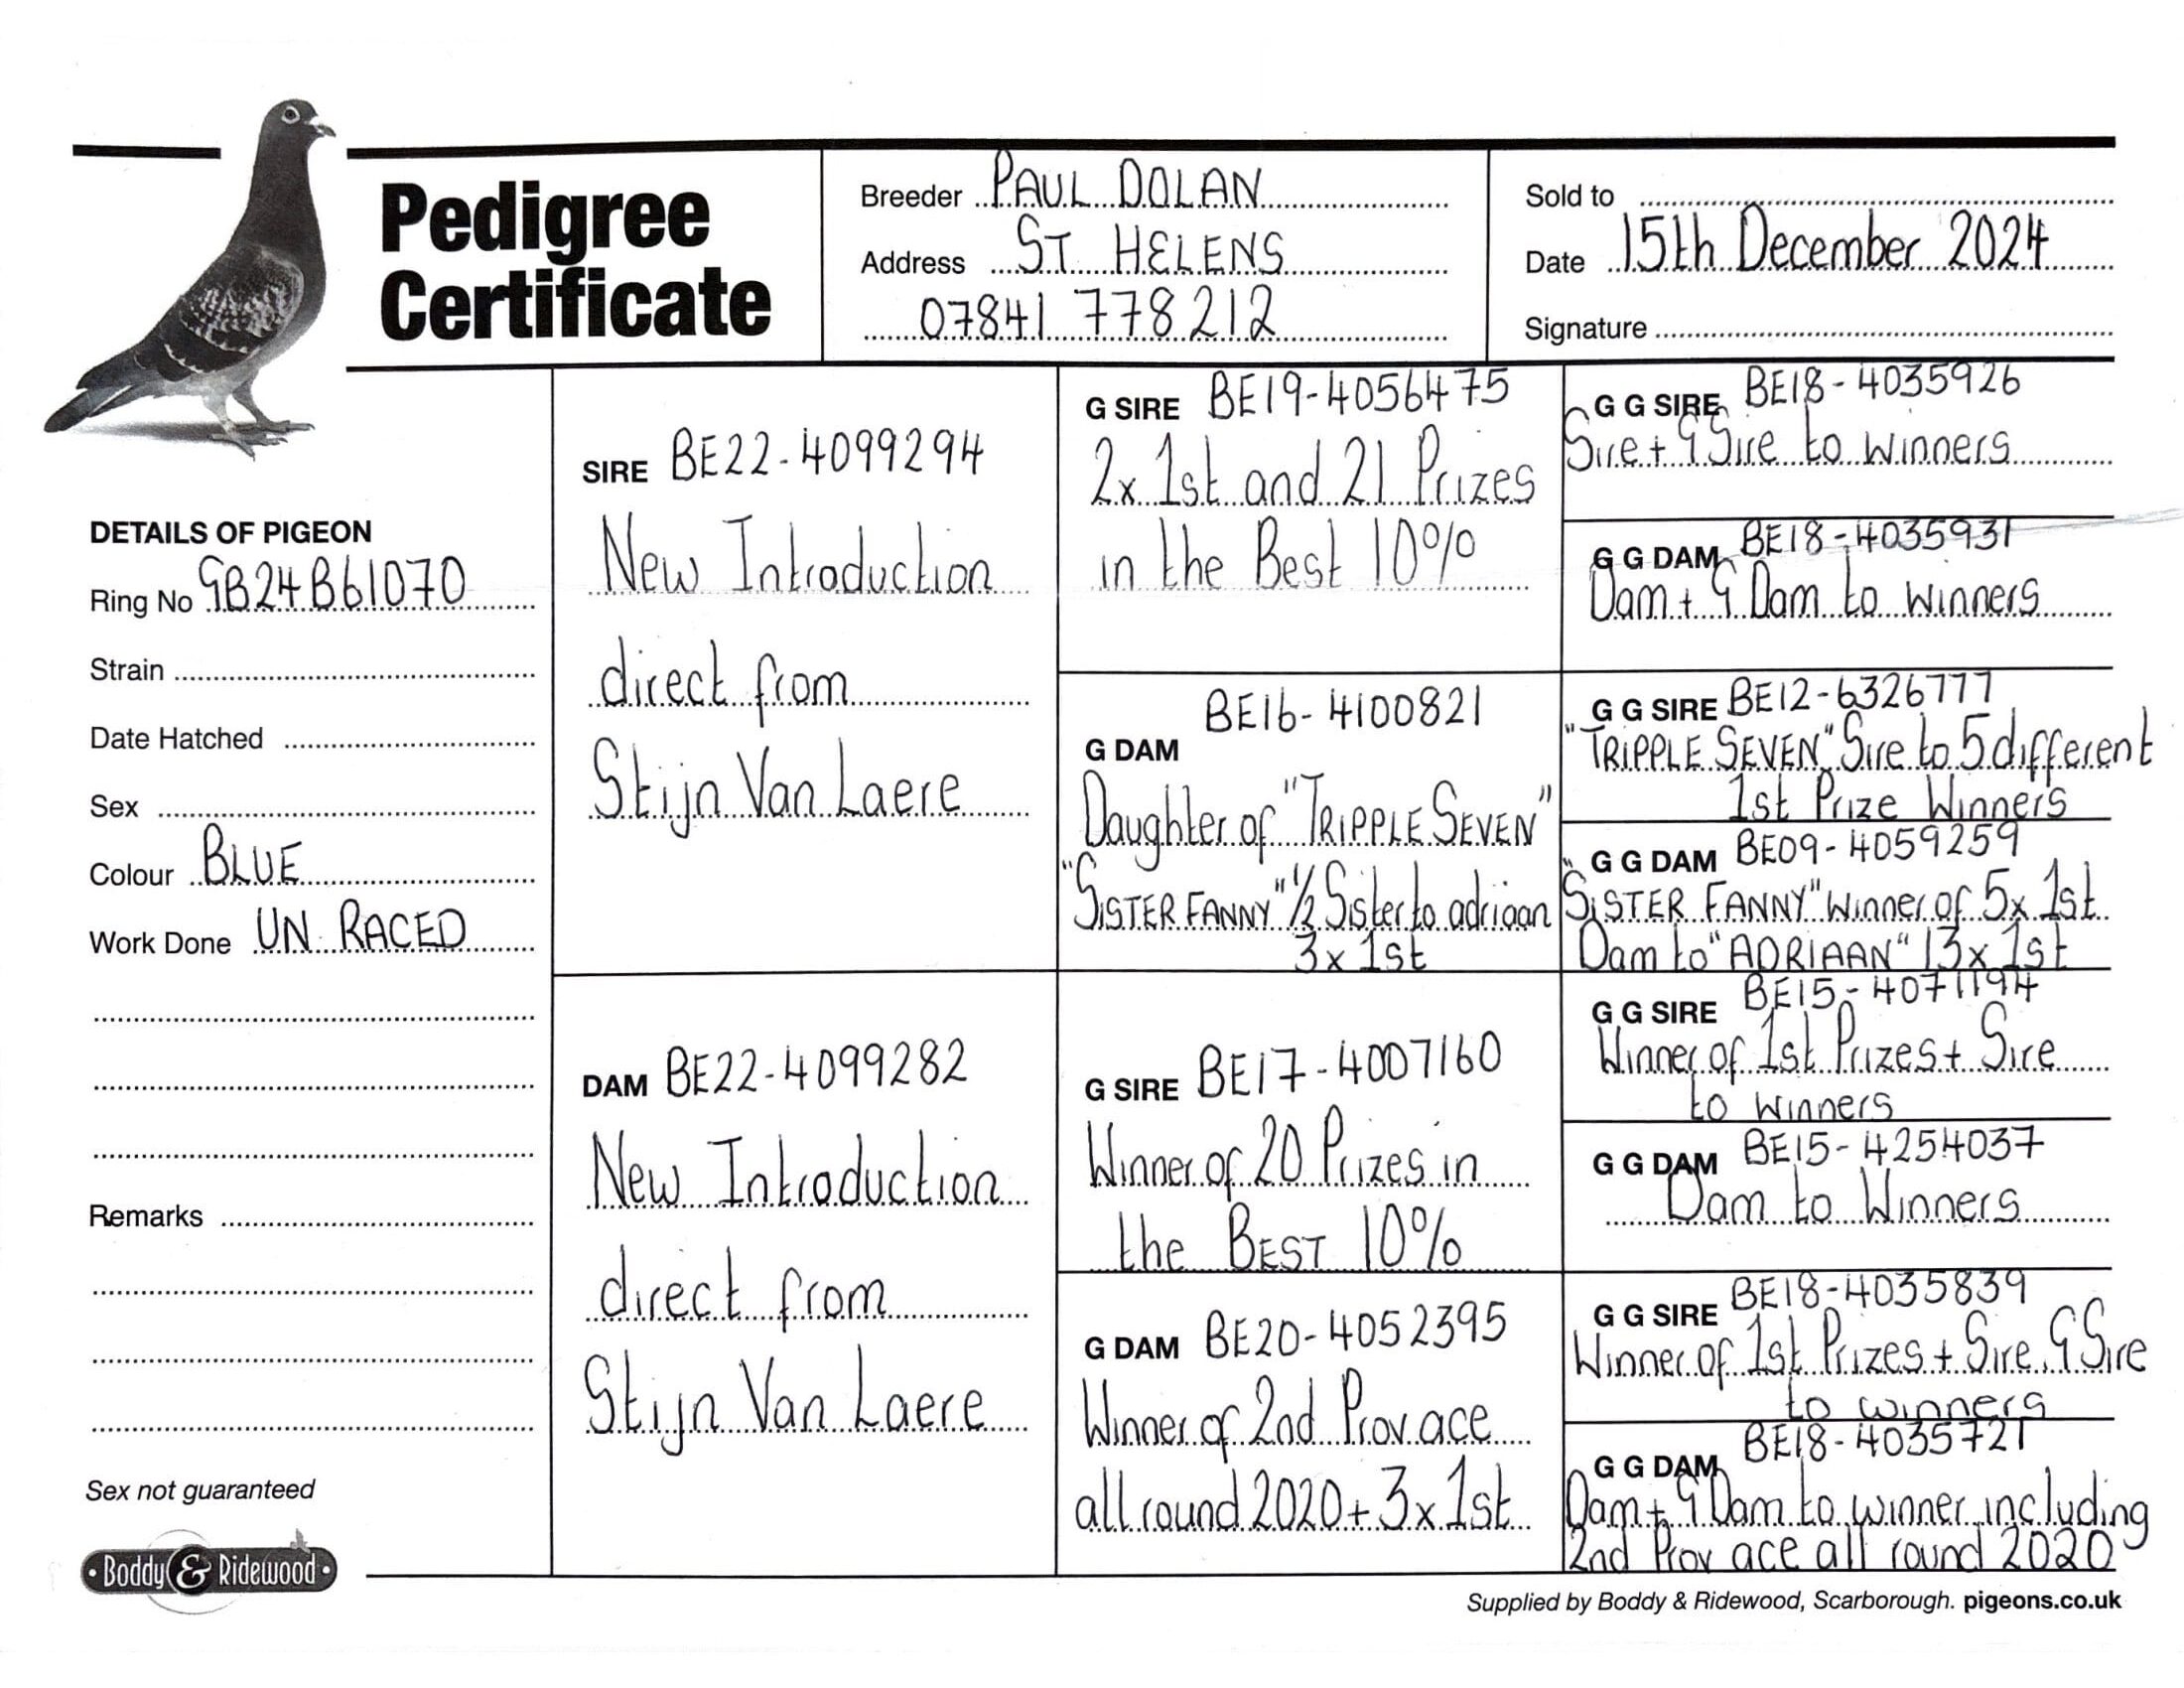 Pedigree
Certificate
Breeder PAUL DOLAN
Address ST HELENS
07841 778212
Sold to
Date 15th December 2024
Signature
DETAILS OF PIGEON
Ring No GB24B61070
Strain
Date Hatched
Sex
Colour BLUE
Work Done UN RACED
Remarks
Sex not guaranteed
Boddy & Ridewood
SIRE BE22-4099294
New Introduction
direct from
Stijn Van Laere
DAM BE22-4099282
New Introduction
direct from
Stijn Van Laere
G SIRE BE19-4056475
2x 1st and 21 Prizes
in the Best 10%
BE16-4100821
G DAM
Daughter of "TRIPPLE SEVEN"
"SISTER FANNY" 1/2 Sister to adriaan
3x 1st
G SIRE BE17-4007160
Winner of 20 Prizes in
the BEST 10%
G DAM BE20-4052395
Winner of 2nd Prov ace
all round 2020 + 3x 1st
G G SIRE BE18-4035926
Sire + G Sire to winners
G G DAM BE18-4035931
Dam + G Dam to winners
G G SIRE BE12-6326777
"TRIPPLE SEVEN" Sire to 5 different
1st Prize Winners
G G DAM BE09-4059259
"SISTER FANNY" Winner of 5x 1st
Dam to "ADRIAAN" 13x 1st
G G SIRE BE15-4071194
Winner of 1st Prizes + Sire
to winners
G G DAM BE15-4254037
Dam to Winners
G G SIRE BE18-4035839
Winner of 1st Prizes + Sire, G Sire
to winners
G G DAM BE18-4035721
Dam + G Dam to winner including
2nd Prov ace all round 2020
Supplied by Boddy & Ridewood, Scarborough. pigeons.co.uk